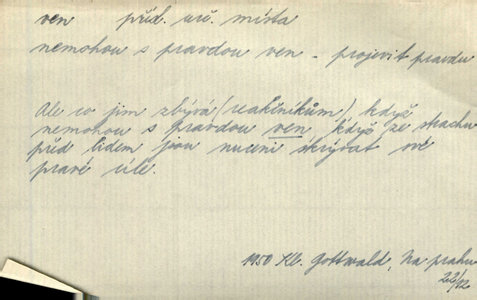 ven přísl. urč. místa
nemohou s pravdou ven - projevit pravdu
Ale co jim zbývá (reakčníkům) když
nemohou s pravdou ven, když ze strachu
před lidem jsou nuceni skrývat své
pravé cíle.
1950 Kl. Gottwald, Na prahu
22/52